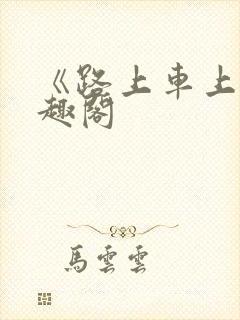 《路上車上
趣閣
馬雲雲